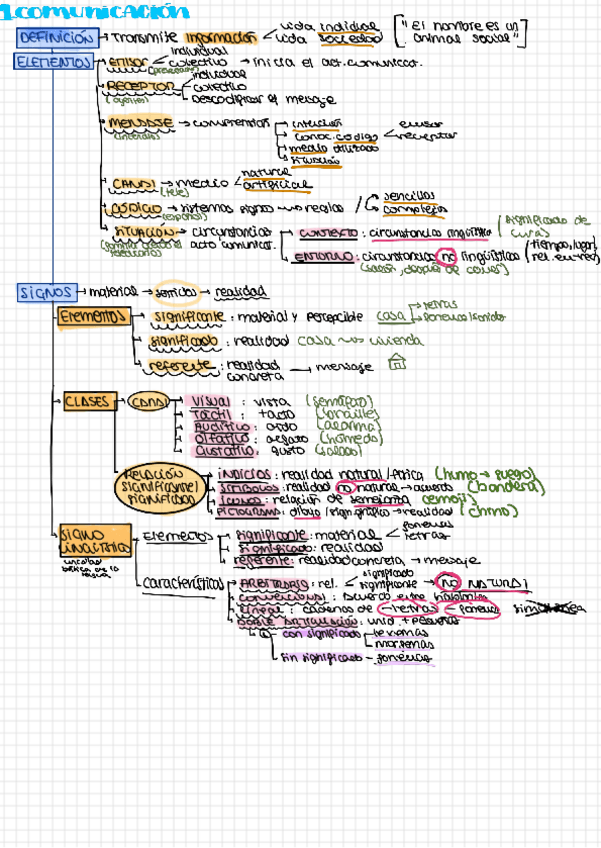 1.comunicación
DEFINICIÓN → Transmite información < vida individual ["El hombre es un
vida sociedad animal social"]
ELEMENTOS → EMISOR < individual
colectivo → inicia el act.comunicat.
RECEPTOR individual
(oyentes) colectivo
Descodificar el mensaje
MENSAJE → comprensión → intención
conoc. código < emisor
receptor
medio utilizado
situación
CANAL → medio < natural
artificial
(tele)
CÓDIGO → sistemas signos → reglas / sencillos
(español) complejos
SITUACIÓN → circunstancias CONTEXTO : circunstancias lingüística (significado de
acto comunicat. curas)
ENTORNO : circunstancias no lingüística (tiempo, lugar,
SIGNOS → material → sentidos → realidad
Elementos → significante : material y perceptible casa → letras
significado : realidad casa → vivienda
referente : realidad → mensaje
concreta
CLASES → CANAL → Visual : vista (semáforo)
Táctil : tacto
Auditivo : oído (alarma)
Olfativo : olfato (húmedo)
Gustativo : gusto (salado)
RELACIÓN
significante/
significado
INDICIOS : realidad natural/física (humo → fuego)
SÍMBOLOS : realidad no natural → acuerdo (bandera)
Iconos : relación de semejanza (emoji)
PICTOGRAMAS : dibujo /sign.gráfico → realidad (chino)
SIGNO
lingüístico
unidad
básica de la
lengua
Elementos → significante : material < fonemas
letras
significado : realidad
referente : realidad concreta → mensaje
Características → ARBITRARIO : rel. < significado
significante → NO NATURAL
CONVENCIONAL : acuerdo entre hablantes
Lineal : cadenas de - letras - fonemas
DOBLE ARTICULACIÓN : unid. + pequeñas
con significado lexemas
morfemas
sin significado - fonemas